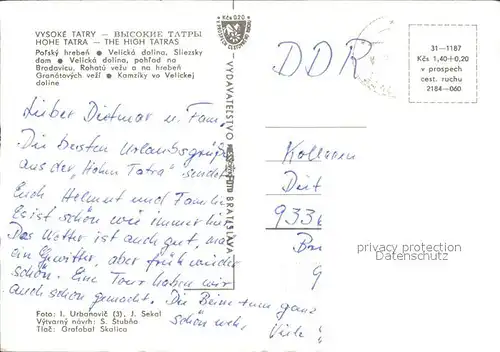 VYSOKÉ TATRY — ВЫСОКИЕ ТАТРЫ
HOHE TATRA — THE HIGH TATRAS
Poľský hrebeň ● Velická dolina, Sliezsky
dom ● Velická dolina, pohľad na
Bradavicu, Rohatú vežu a na hrebeň
Granátových veží ● Kamzíky vo Velickej
doline
Kčs 0,20
VYDAVATEĽSTVO
BRATISLAVA
DDR
31—1187
Kčs 1,40+0,20
v prospech
cest. ruchu
2184—060
Lieber Dietmar u. Fam.,
Die besten Urlaubsgrüße
aus der „Hohen Tatra" sendet
Euch Helmut und Familie
Es ist schön wie immer hier
Das Wetter ist auch gut, mal
ein Gewitter, aber früh wieder
schön. Eine Tour haben wir
auch schön gemacht. Die Beine tun ganz
schön weh. Viele
933
privacy protection
Datenschutz
Foto: I. Urbanovič (3), J. Sekal
Výtvarný návrh: S. Štubňa
Tlač: Grafobal Skalica